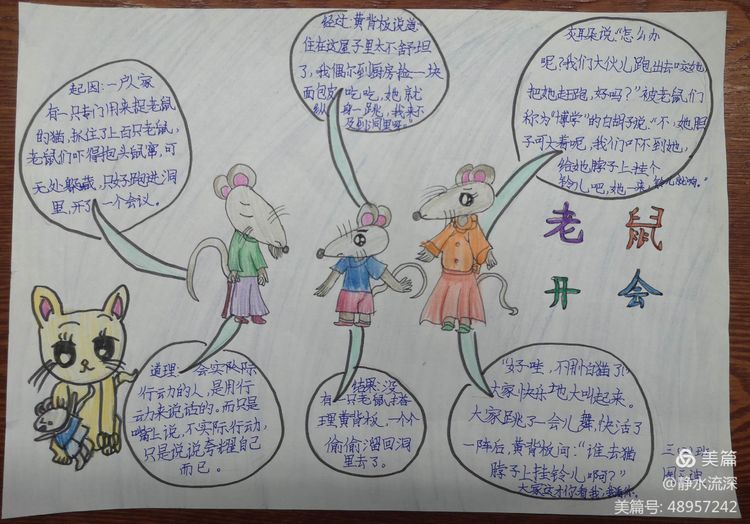 起因:一户人家
有一只专门用来捉老鼠
的猫,抓住了上百只老鼠,
老鼠们吓得抱头鼠窜,可
无处躲藏,只好跑进洞
里,开了一个会议。
经过:黄背板说道:
住在这屋子里太不舒坦
了,我偶尔到厨房捡一块
面包皮吃吃,她就
纵身一跳,我来不
及到洞里呀。"
灰耳朵说:"怎么办
呢?我们大伙儿跑出去咬她
把她赶跑,好吗?"被老鼠们
称为"博学"的白胡子说:"不,她胆
子可大着呢,我们吓不到她,
给她脖子上挂个
铃儿吧,她一来,铃儿就响。"
老鼠
开会
道理:会实际
行动的人,是用行
动来说话的。而只是
嘴上说,不实际行动,
只是说说夸耀自己
而已。
结果:没
有一只老鼠
理黄背板,一个个
偷偷溜回洞
里去了。
"好哇,不用怕猫了!"
大家快乐地大叫起来。
大家跳了一会儿舞,快活了
一阵后,黄背板问:"谁去猫
脖子上挂铃儿啊?"
大家这才你看我,我看你。
美篇
@静水流深
美篇号: 48957242